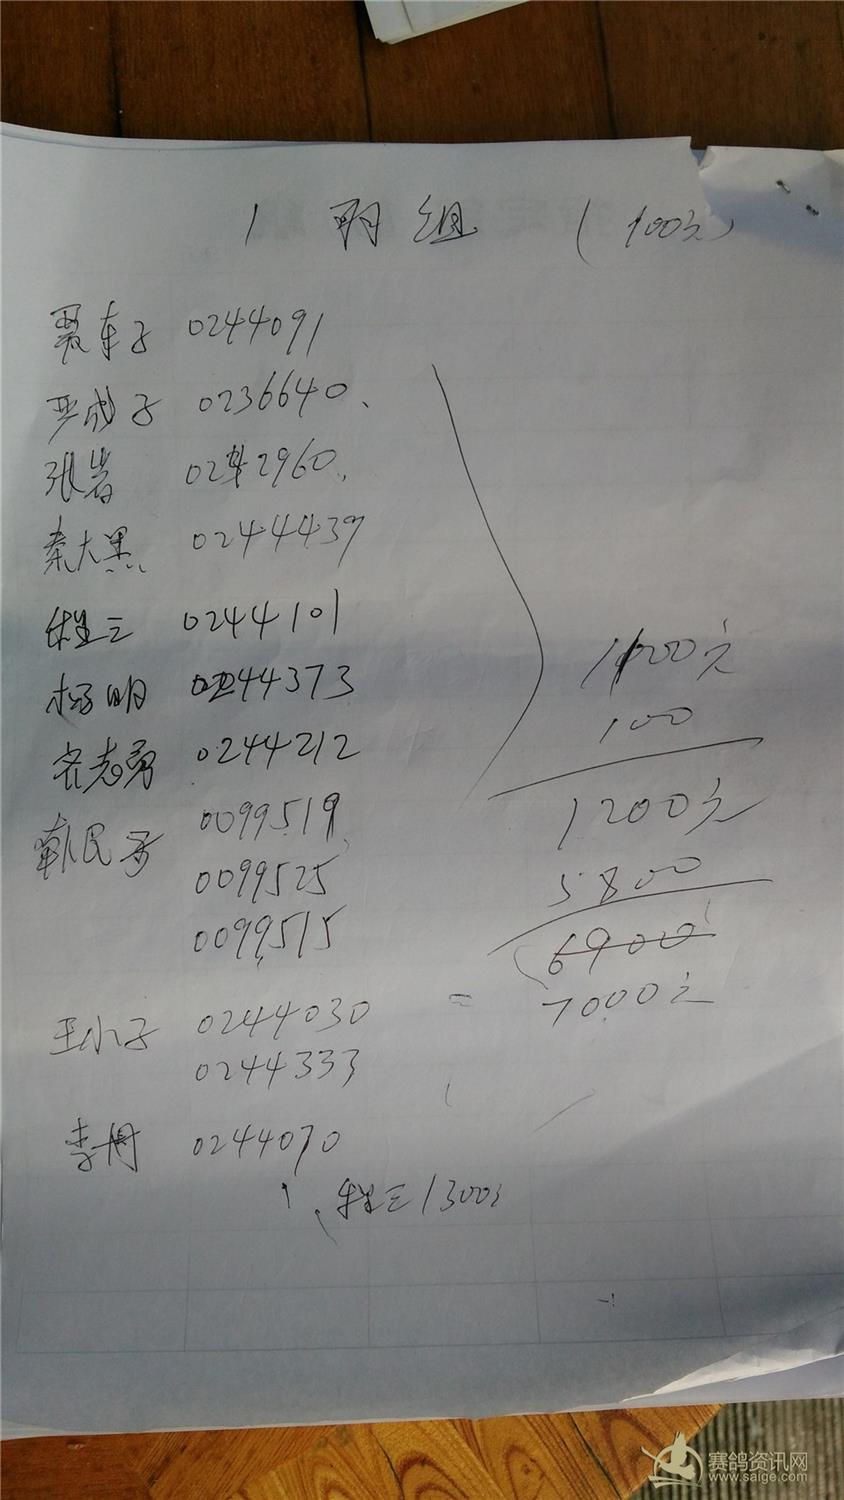 1 羽 组 (100元)
聂车子 0244091
严成子 0236640、
张岩 0242960.
秦大黑 0244439
程三 0244101
杨明 0244373
志勇 0244212
韩民 0099519
0099525
0099515
王小子 0244030
0244333
李丹 0244070
程三1300元
1100元
100
1200元
5800
6900
= 7000元
赛鸽资讯网
www.saige.com